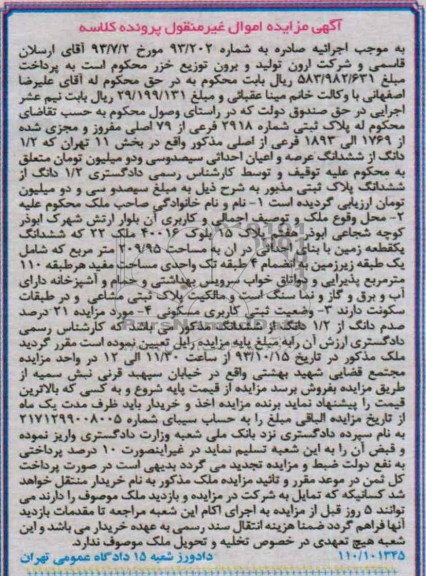 آگهی مزایده اموال غیرمنقول پرونده کلاسه
به موجب اجرائیه صادره به شماره ۹۳/۲۰۲ مورخ ۹۳/۷/۲ آقای ارسلان
قاسمی و شرکت ارون تولید و برون توزیع خزر محکوم است به پرداخت
مبلغ ۵۸۳/۹۸۲/۶۳۱ ریال بابت محکوم به در حق محکوم له آقای علیرضا
اصفهانی با وکالت خانم مینا عقبائی و مبلغ ۲۹/۱۹۹/۱۳۱ ریال بابت نیم عشر
اجرایی در حق صندوق دولت که در راستای وصول محکوم به حسب تقاضای
محکوم له پلاک ثبتی شماره ۲۹۱۸ فرعی از ۷۹ اصلی مفروز و مجزی شده
از ۱۷۶۹ الی ۱۸۹۳ فرعی از اصلی مذکور واقع در بخش ۱۱ تهران که ۱/۲
دانگ از ششدانگ عرصه و اعیان احداثی سیصدوسی ودو میلیون تومان متعلق
به محکوم علیه توقیف و توسط کارشناس رسمی دادگستری ۱/۲ دانگ از
ششدانگ پلاک ثبتی مذبور به شرح ذیل به مبلغ سیصدو سی و دو میلیون
تومان ارزیابی گردیده است ۱- نام و نام خانوادگی صاحب ملک محکوم علیه
۲- محل وقوع ملک و توصیف اجمالی و کاربری آن بلوار ارتش شهرک ابوذر
کوچه شجاعی ابوذر هفتم پلاک ۲۸ بلوک ۴۰۰۱۶ ملک ۲۲ که ششدانگ
یکقطعه زمین با بنای احداثی در آن به مساحت ۲۰۹/۹۵ متر مربع که شامل
یک طبقه زیرزمین به انضمام ۴ طبقه تک واحدی مساحت مفید هرطبقه ۱۱۰
مترمربع پذیرایی و دواتاق خواب سرویس بهداشتی و حمام و آشپزخانه دارای
آب و برق و گاز و نما سنگ است و مالکیت پلاک ثبتی مشاعی و در طبقات
سکونت دارند ۳- وضعیت ثبتی کاربری مسکونی ۴- مورد مزایده ۲۱ درصد
صدم دانگ از ۱/۲ دانگ از ششدانگ مذکور می باشد که کارشناس رسمی
دادگستری ارزش آن را به مبلغ پایه مزایده رایل تعیین نموده است مقرر گردید
ملک مذکور در تاریخ ۹۳/۱۰/۱۵ از ساعت ۱۱/۳۰ الی ۱۲ در واحد مزایده
مجتمع قضایی شهید بهشتی واقع در خیابان سپهبد قرنی نبش سمیه از
طریق مزایده بفروش برسد مزایده از قیمت پایه شروع و به کسی که بالاترین
قیمت را پیشنهاد نماید برنده مزایده اخذ و خریدار باید ظرف مدت یک ماه
از تاریخ مزایده الباقی مبلغ را به حساب سیبای شماره ۲۱۷۱۲۹۹۰۰۸۰۰۵
به نام سپرده دادگستری نزد بانک ملی شعبه وزارت دادگستری واریز نموده
و قبض آن را به این شعبه تسلیم نماید در غیراینصورت ۱۰ درصد پرداختی
به نفع دولت ضبط و مزایده تجدید می گردد بدیهی است در صورت پرداخت
کل ثمن در موعد مقرر و تائید مزایده ملک مذکور به نام خریدار منتقل خواهد
شد کسانیکه که تمایل به شرکت در مزایده و بازدید ملک موصوف را دارند می
توانند ۵ روز قبل از مزایده به اجرای اکام این شعبه مراجعه تا مقدمات بازدید
آنها فراهم گردد ضمنا هزینه انتقال سند رسمی به عهده خریدار می باشد و این
شعبه هیچ تعهدی در خصوص تخلیه و تحویل ملک موصوف ندارد.
۱۱۰/۱۰۱۳۴۵ دادورز شعبه ۱۵ دادگاه عمومی تهران